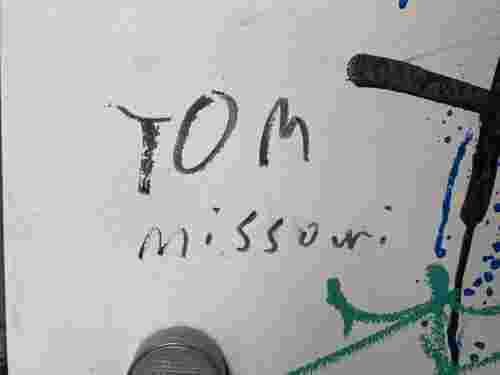 TOM
missouri